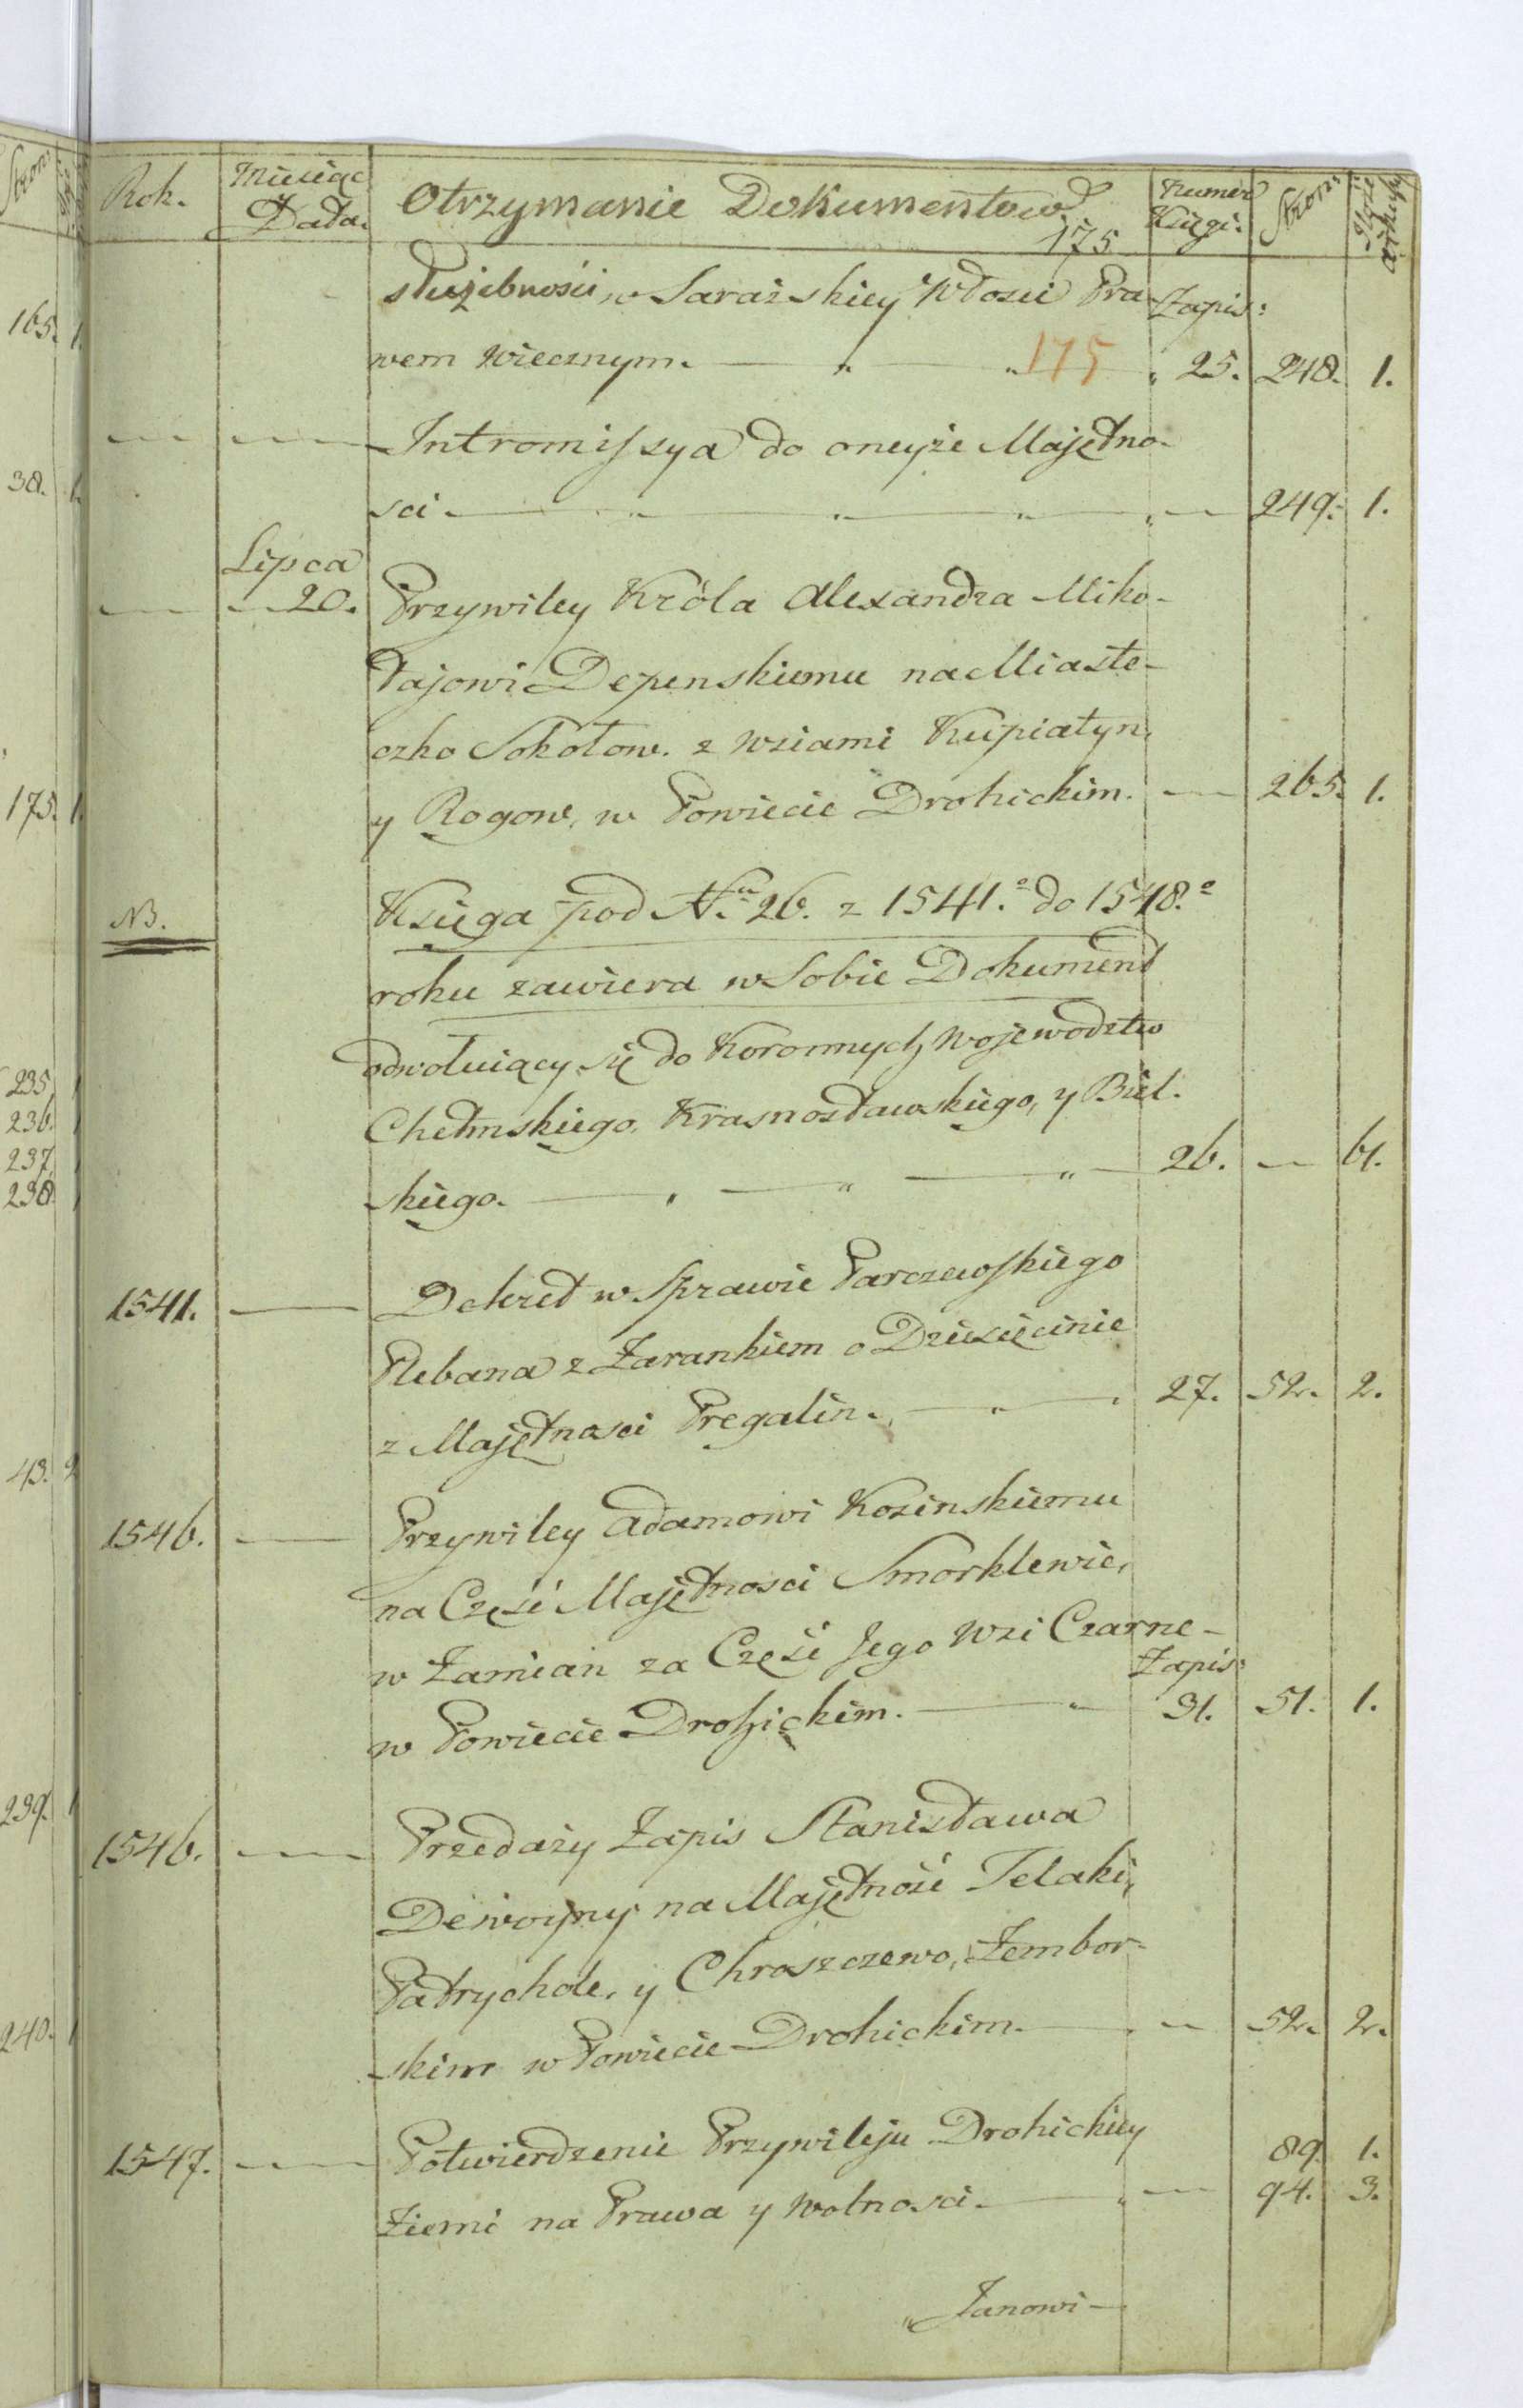 Rok. Miesiąc Data. Otrzymanie Dokumentow Numer Księgi: Stron:
175
służebności w Sarażskiey Włosci Pra- Zapis:
wem wiecznym. 175 25. 248. 1.
Intromissya do oneyże Majętno-
sci. 249. 1.
Lipca
20. Przywiley Króla Alexandra Miko-
łajowi Depenskiemu na Miaste-
czko Sokołow. z wsiami Kupiatyn,
y Rogow, w Powiecie Drohickim. 265. 1.
NB. Księga pod N. 26. z 1541.° do 1548.°
roku zawiera w Sobie Dokument
odwołuiący się do Koronnych Wojewodztw
Chełmskiego, Krasnosławskiego, y Biel-
skiego. 26. 61.
1541. Dekret w Sprawie Parczewskiego
Plebana z Zarankiem o Dziesięcinie
z Majętnosci Pregalin. 27. 52. 2.
1546. Przywiley Adamowi Kosinskiemu
na Część Majętnosci Smorklewie,
w Zamian za Część Jego Wsi Czarne- Zapis:
w Powiecie Drohickim. 31. 51. 1.
1546. Przedaży Zapis Stanisława
Dewoyny na Majętność Telaki,
Patrychole, y Chroszczewo, Zembor-
skim w Powiecie Drohickim. 52. 2.
1547. Potwierdzenie Przywileju Drohickiey 89. 1.
Ziemi na Prawa y Wolnosci. 94. 3.
Janowi
165. 1.
38. 1.
175. 1.
235
236.
237
238
43. 2
239. 1
240. 1